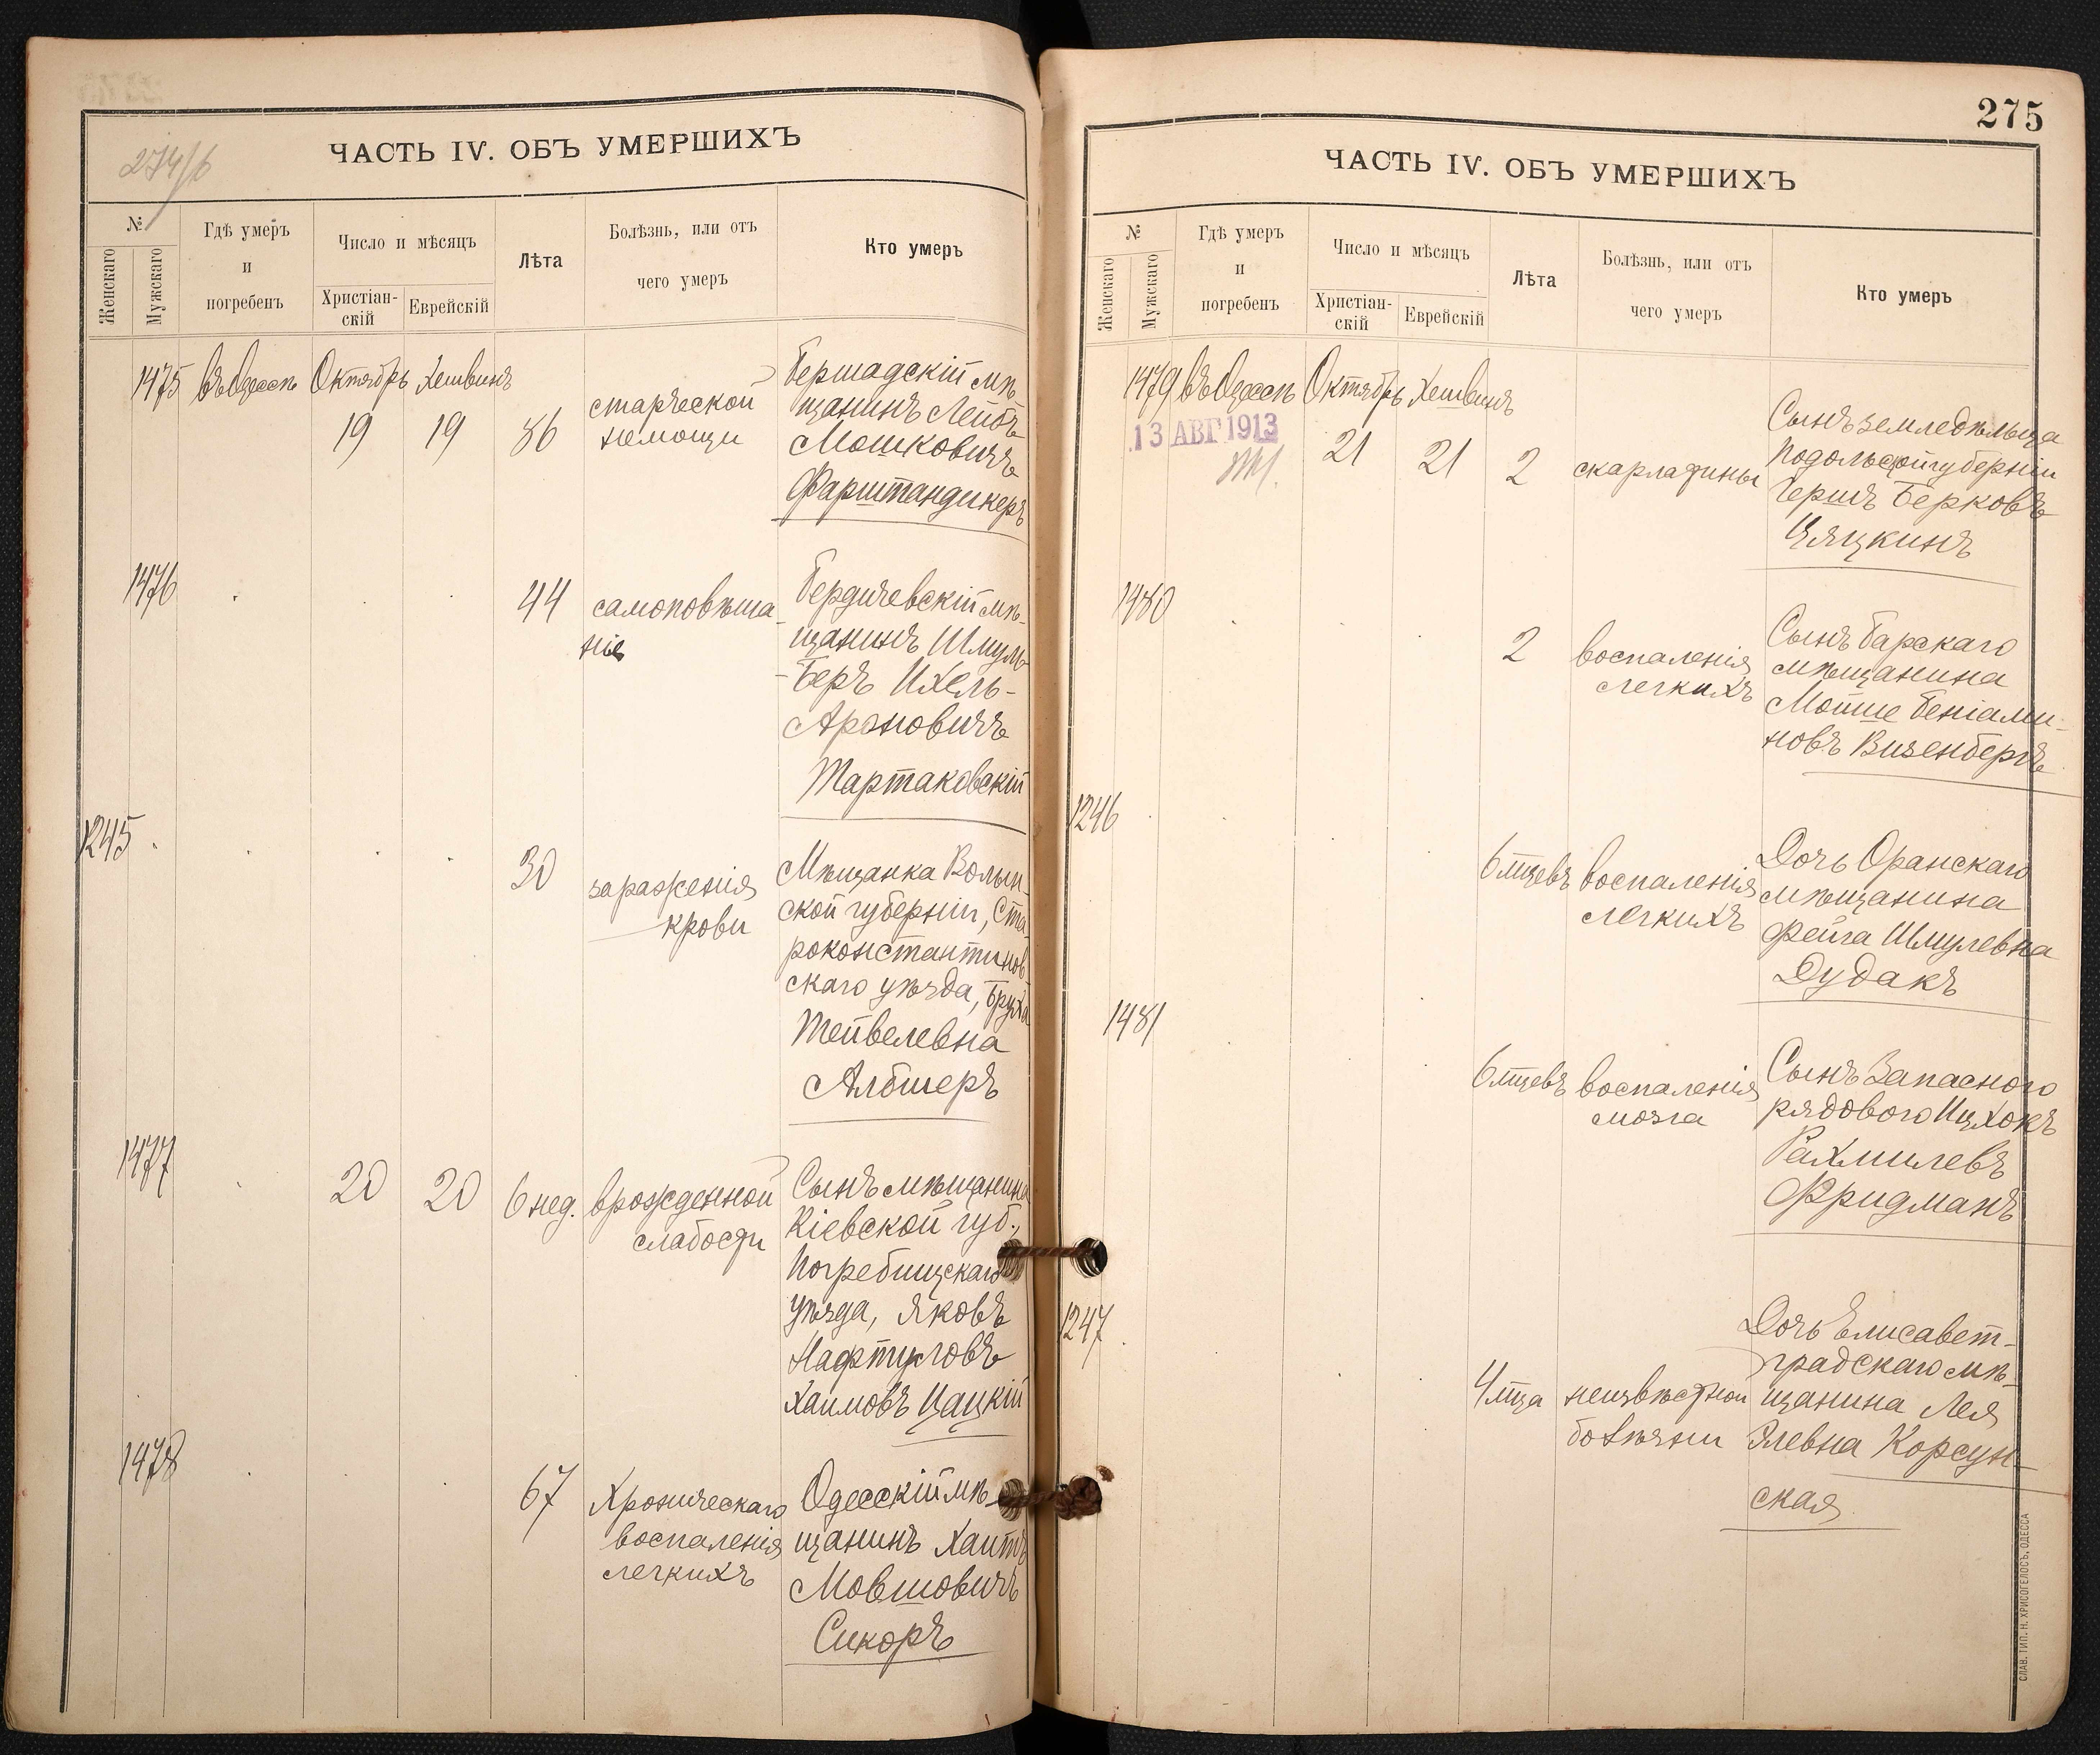 274/б
ЧАСТЬ IV. ОБЪ УМЕРШИХЪ
№
Женскаго
Мужскаго
Гдѣ умеръ
и
погребенъ
Число и мѣсяцъ
Христіан-
скій
Еврейскій
Лѣта
Болѣзнь, или отъ
чего умеръ
Кто умеръ
1475 въ Одессѣ Октябрь Хешвинъ
19 19 86
старческой
немощи
Бершадскій мѣ-
щанинъ Лейбъ
Мошковичъ
Фарштандикеръ
1476
44
самоповѣша-
ніе
Бердичевскій мѣ-
щанинъ Шмуль-
-Беръ Ихель-
Ароновичъ
Тартаковскій
1245
30
зараженія
крови
Мѣщанка Волын-
ской губерніи, Ста-
роконстантинов
скаго уѣзда, Бруха
Тейвелевна
Албшеръ
1477
20 20 6 нед.
врожденной
слабости
Сынъ мѣщанина
Кіевской губ.,
Погребищскаго
уѣзда, Яковъ
Нафтуловъ
Хаимовъ Цацкій
1478
67
Хроническаго
воспаленія
легкихъ
Одесскій мѣ-
щанинъ Хаимъ
Мовшовичъ
Сикоръ
275
ЧАСТЬ IV. ОБЪ УМЕРШИХЪ
№
Женскаго
Мужскаго
Гдѣ умеръ
и
погребенъ
Число и мѣсяцъ
Христіан-
скій
Еврейскій
Лѣта
Болѣзнь, или отъ
чего умеръ
Кто умеръ
1479 въ Одессѣ Октябрь Хешвинъ
13 АВГ 1913
21 21 2
скарлатины
Сынъ земледѣльца
Подольской губерніи
Гершъ Берковъ
Цяцкинъ
1480
2
воспаленія
легкихъ
Сынъ Барскаго
мѣщанина
Мойше Беніами-
новъ Визенбергъ
1246
6 мцевъ
воспаленія
легкихъ
Дочь Оранскаго
мѣщанина
Фейга Шмулевна
Дудакъ
1481
6 мцевъ
воспаленія
мозга
Сынъ Запасного
рядового Ицхокъ
Рахмилевъ
Фридманъ
1247
4 мца
неизвѣстной
болѣзни
Дочь Елисавет-
градскаго мѣ-
щанина Лея
Элевна Корсун-
ская
СЛАВ. ТИП. Н. ХРИСОГЕЛОСЪ, ОДЕССА